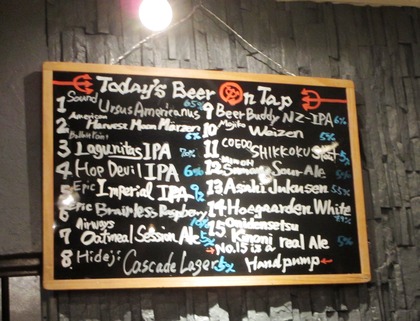 Today's Beer On Tap
1 Sound Ursus Americanus 6.5%
2 American Harvest Moon Marzen 6%
3 Ballast Point Lagunitas IPA
4 Hop Devil IPA 6%
5 Epic Imperial IPA 9%
6 Epic Brainless Raspberry 10%
7 Airways Oatmeal Session Ale 5%
8 Hideji Cascade Lager 5%
9 Beer Buddy NZ-IPA 6%
10 Mojiko Weizen 5%
11 COEDO SHIKKOKU 5%
12 Minoh Ale 5%
13 Asahi Jukusen 5.5%
14 Hoegaarden White
15 Daidensetsu Kinoni real Ale 5%
→ No.15 is a Handpump ←